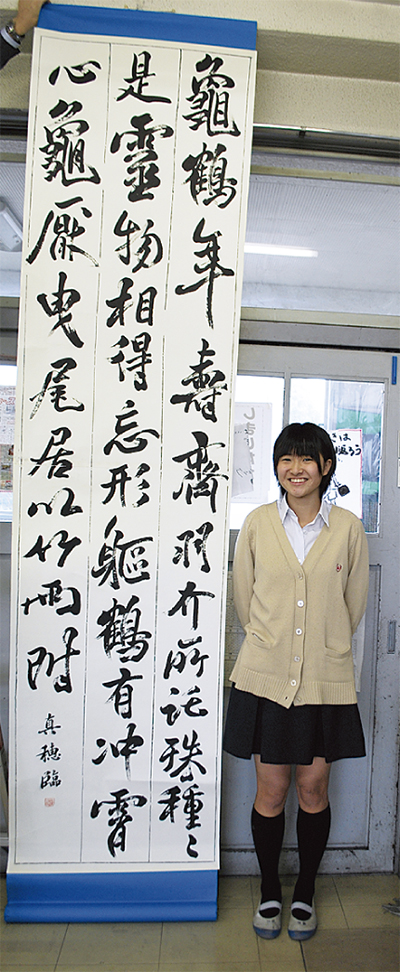 龜鶴年壽齊羽介所託殊種〻
是靈物相得忘形軀鶴有冲霄
心龜厭曳尾居以竹兩附
真穂臨